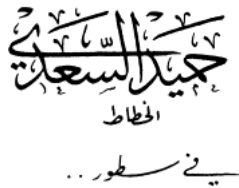 حميد السّعدي
الخطاط
في سطور ..